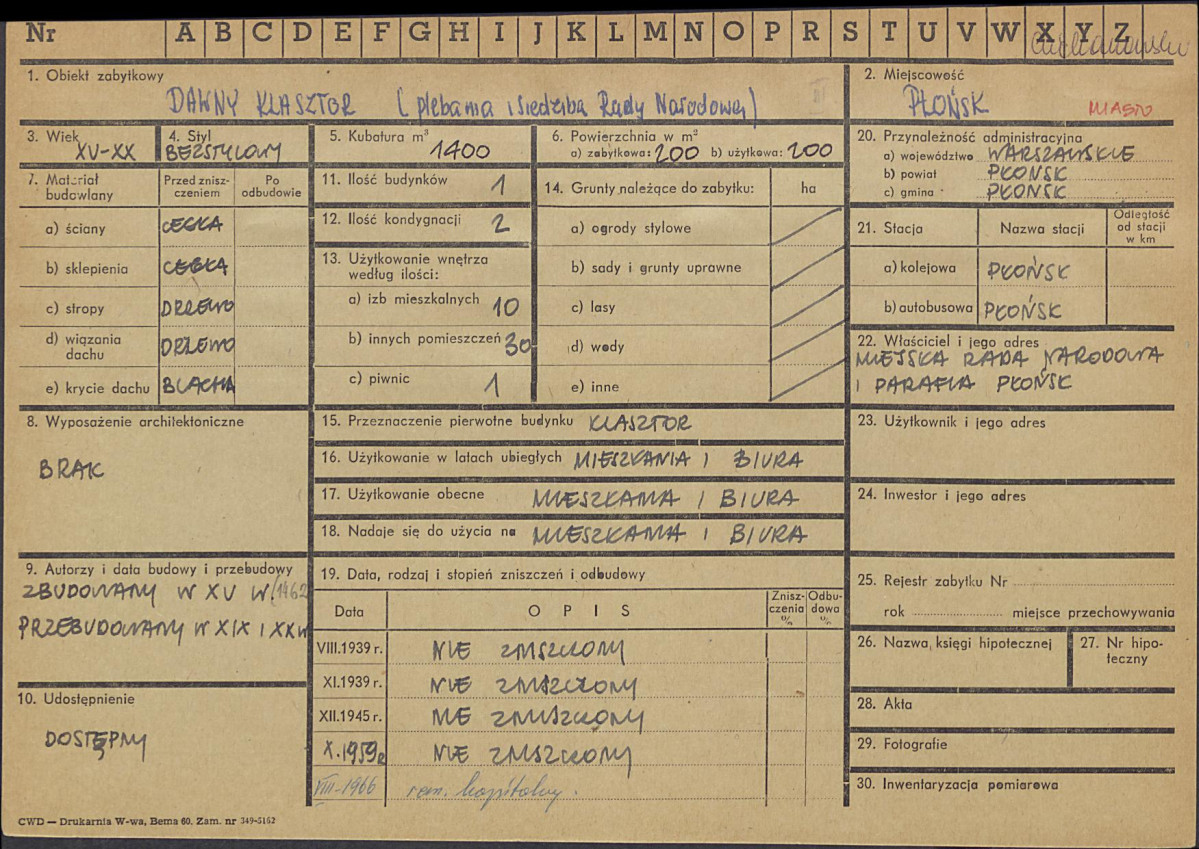 Nr A B C D E F G H I J K L M N O P R S T U V W X Y Z
1. Obiekt zabytkowy
DAWNY KLASZTOR (plebania i siedziba Rady Narodowej)
2. Miejscowość
PŁOŃSK MIASTO
3. Wiek
XV-XX
4. Styl
BEZSTYLOWY
5. Kubatura m³
1400
6. Powierzchnia w m²
a) zabytkowa: 200 b) użytkowa: 200
20. Przynależność administracyjna
a) województwo WARSZAWSKIE
b) powiat PŁOŃSK
c) gmina PŁOŃSK
7. Materiał budowlany
Przed zniszczeniem
Po odbudowie
a) ściany CEGŁA
b) sklepienia CEGŁA
c) stropy DRZEWO
d) wiązania dachu DRZEWO
e) krycie dachu BLACHA
11. Ilość budynków 1
12. Ilość kondygnacji 2
13. Użytkowanie wnętrza według ilości:
a) izb mieszkalnych 10
b) innych pomieszczeń 30
c) piwnic 1
14. Grunty należące do zabytku: ha
a) ogrody stylowe
b) sady i grunty uprawne
c) lasy
d) wody
e) inne
21. Stacja Nazwa stacji Odległość od stacji w km
a) kolejowa PŁOŃSK
b) autobusowa PŁOŃSK
22. Właściciel i jego adres
MIEJSKA RADA NARODOWA
I PARAFIA PŁOŃSK
8. Wyposażenie architektoniczne
BRAK
15. Przeznaczenie pierwotne budynku KLASZTOR
16. Użytkowanie w latach ubiegłych MIESZKANIA I BIURA
17. Użytkowanie obecne MIESZKANIA I BIURA
18. Nadaje się do użycia na MIESZKANIA I BIURA
23. Użytkownik i jego adres
24. Inwestor i jego adres
9. Autorzy i data budowy i przebudowy
ZBUDOWANY W XV W (1462
PRZEBUDOWANY W XIX I XX W
10. Udostępnienie
DOSTĘPNY
19. Data, rodzaj i stopień zniszczeń i odbudowy
Data OPIS Zniszczenia % Odbudowa %
VIII.1939 r. NIE ZNISZCZONY
XI.1939 r. NIE ZNISZCZONY
XII.1945 r. NIE ZNISZCZONY
X.1959 r NIE ZNISZCZONY
VIII-1966 rem. kapitalny.
25. Rejestr zabytku Nr
rok miejsce przechowywania
26. Nazwa księgi hipotecznej
27. Nr hipoteczny
28. Akta
29. Fotografie
30. Inwentaryzacja pomiarowa
CWD — Drukarnia W-wa, Bema 60. Zam. nr 349-5162